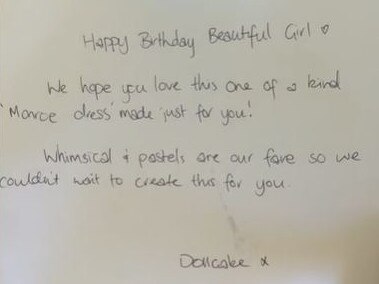 Happy Birthday Beautiful Girl ♡
We hope you love this one of a kind
'Monroe dress' made just for you!
Whimsical & pastels are our fave so we
couldn't wait to create this for you.
Dollcake x